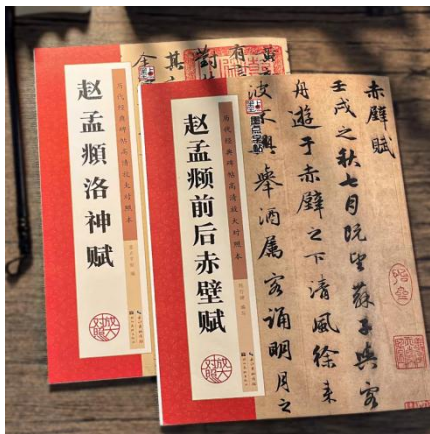 赵孟頫洛神赋
历代经典碑帖高清放大对照本
赵孟頫前后赤壁赋
历代经典碑帖高清放大对照本
墨点字帖
赤壁赋
壬戌之秋七月既望苏子与客
舟游于赤壁之下清风徐来
波不兴举酒属客诵明月之